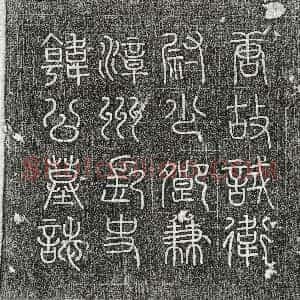 唐故試衛
尉少卿兼
漳州刺史
韓公墓誌